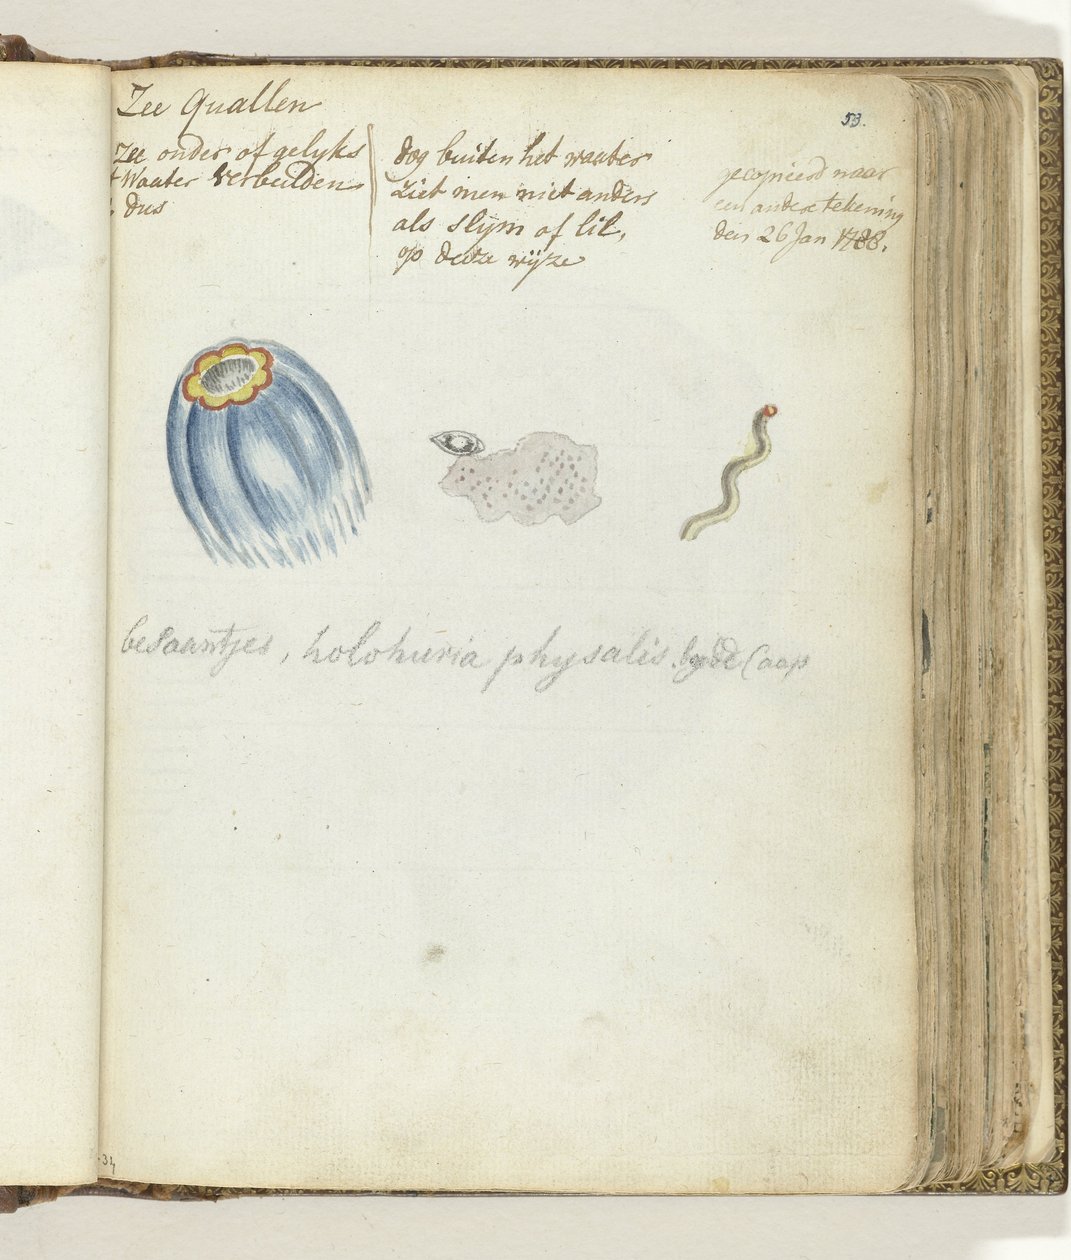 Zee Quallen
53.
zee onder of gelyks
t Waater verbeelden
dus
dog buiten het waater
ziet men niet anders
als slijm of lil,
op deeze wijze
gecopieerd naar
een andere tekening
den 26 Jan 1788.
besaantjes, holohuria physalis. by de Caap
34